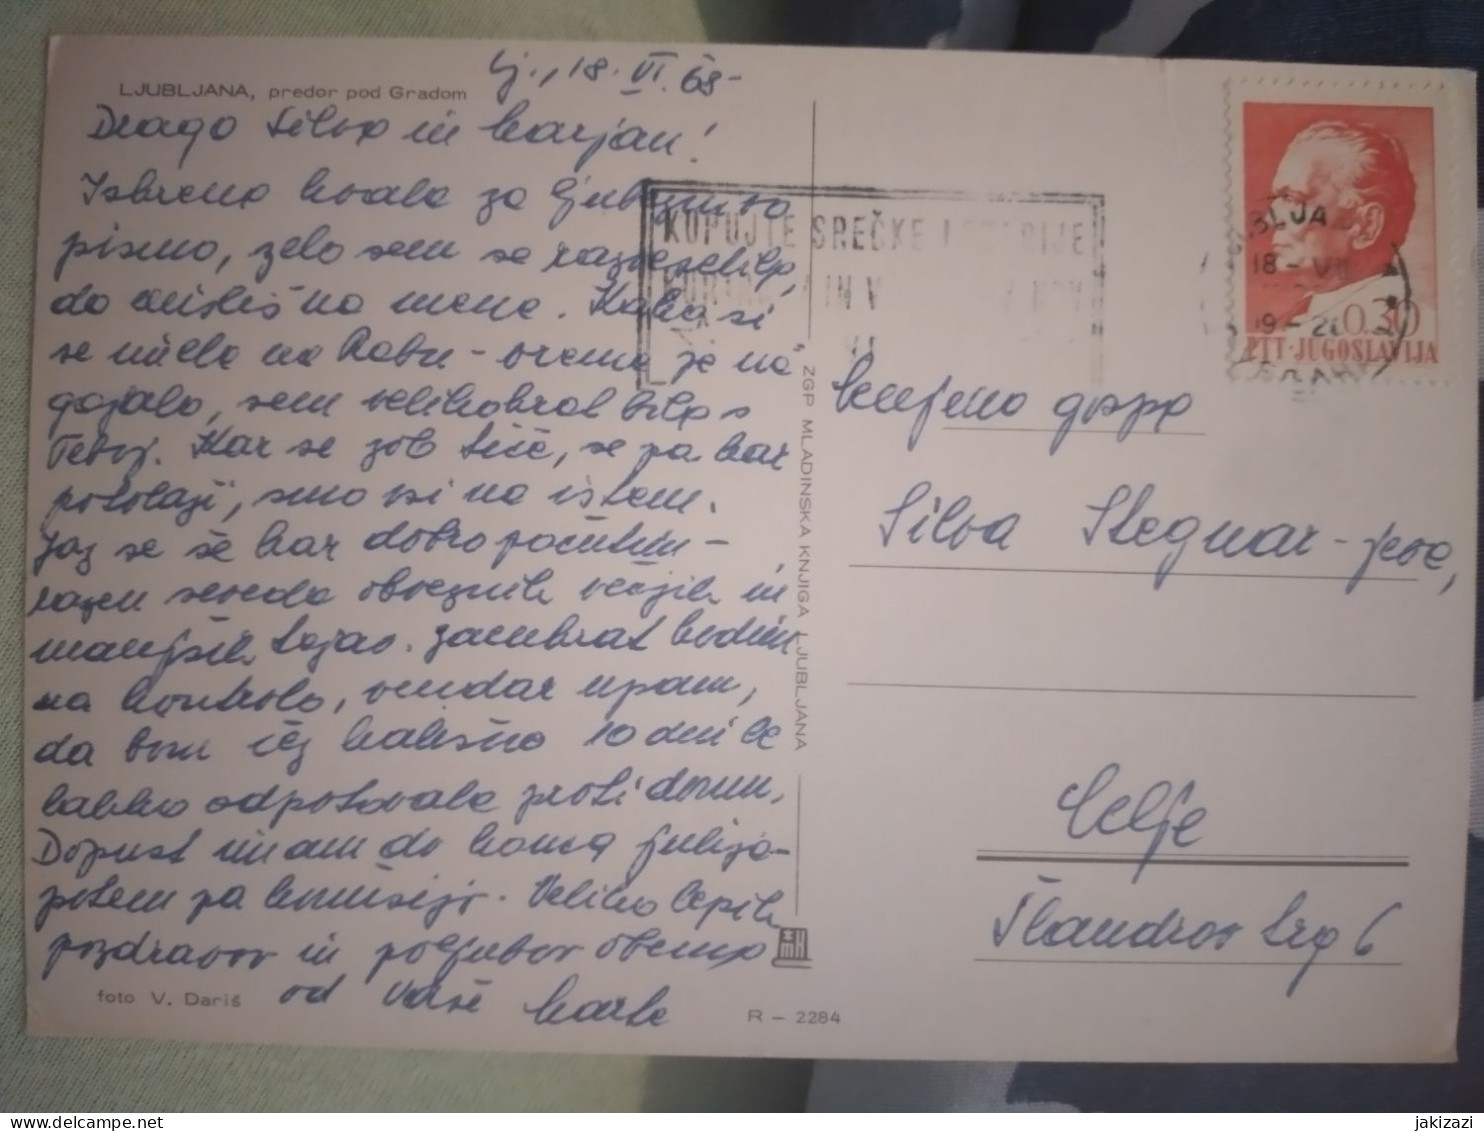 LJUBLJANA, predor pod Gradom
Lj., 18. VI. 68-
Draga Silva in Marjan!
Iskrena hvala za ljubeznivo
pismo, zelo sem se razveselila,
da misliš na mene. Kako si
se imela na Rabu - vreme je na-
gajalo, sem velikokrat bila s
Teboj. Kar se zob tiče, se pa kar
potolaži, smo vsi na istem.
Jaz se še kar dobro počutim -
razen seveda obveznih večjih in
manjših težav. Zaenkrat hodim
na kontrolo, vendar upam,
da bom čez kakšno 10 dni že
lahko odpotovala proti domu.
Dopust imam do konca julija-
potem pa komisijo. Veliko lepih
pozdravov in poljubov obema
od Vaše
foto V. Dariš
R - 2284
ZGP MLADINSKA KNJIGA LJUBLJANA
KUPUJTE SREČKE
IN
18 - VI
0.30
PTT-JUGOSLAVIJA
Cenjena gospa
Silva Stegnar-
Celje
Šlandrov trg 6
jakizazi